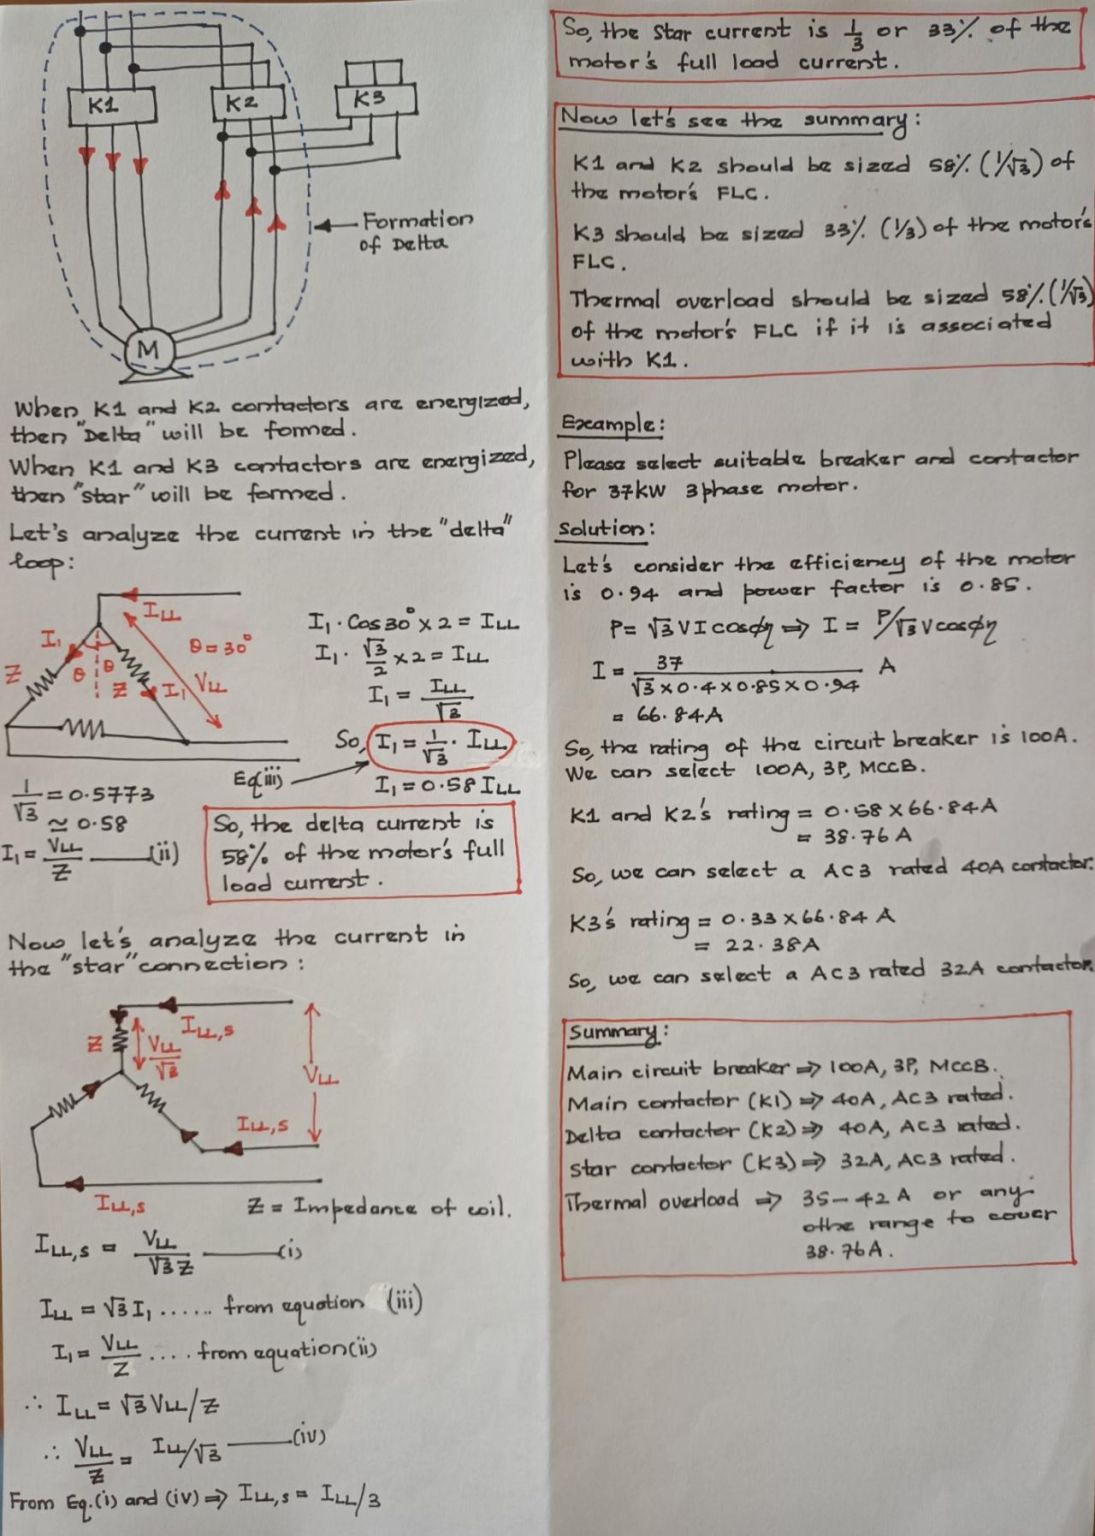 K1
K2
K3
M
Formation
of Delta
When K1 and K2 contactors are energized,
then "Delta" will be formed.
When K1 and K3 contactors are energized,
then "star" will be formed.
Let's analyze the current in the "delta"
loop:
I_LL
I₁
θ = 30°
Z
θ θ
Z
I₁
V_LL
I₁ · Cos30° × 2 = I_LL
I₁ · √3/2 × 2 = I_LL
I₁ = I_LL/√3
So, I₁ = 1/√3 · I_LL
Eq(iii)
I₁ = 0.58 I_LL
1/√3 = 0.5773
≃ 0.58
I₁ = V_LL/Z (ii)
So, the delta current is
58% of the motor's full
load current.
Now let's analyze the current in
the "star" connection:
I_LL,s
Z
V_LL/√3
V_LL
I_LL,s
I_LL,s
Z = Impedance of coil.
I_LL,s = V_LL/√3 Z (i)
I_LL = √3 I₁ ...... from equation (iii)
I₁ = V_LL/Z .... from equation (ii)
∴ I_LL = √3 V_LL/Z
∴ V_LL/Z = I_LL/√3 (iv)
From Eq.(i) and (iv) ⇒ I_LL,s = I_LL/3
So, the star current is 1/3 or 33% of the
motor's full load current.
Now let's see the summary:
K1 and K2 should be sized 58% (1/√3) of
the motor's FLC.
K3 should be sized 33% (1/3) of the motor's
FLC.
Thermal overload should be sized 58% (1/√3)
of the motor's FLC if it is associated
with K1.
Example:
Please select suitable breaker and contactor
for 37kW 3phase motor.
Solution:
Let's consider the efficiency of the motor
is 0.94 and power factor is 0.85.
P = √3 V I cosϕη ⇒ I = P/√3 V cosϕη
I = 37/√3 × 0.4 × 0.85 × 0.94 A
= 66.84A
So, the rating of the circuit breaker is 100A.
We can select 100A, 3P, MCCB.
K1 and K2's rating = 0.58 × 66.84 A
= 38.76 A
So, we can select a AC3 rated 40A contactor.
K3's rating = 0.33 × 66.84 A
= 22.38A
So, we can select a AC3 rated 32A contactor.
Summary:
Main circuit breaker ⇒ 100A, 3P, MCCB.
Main contactor (K1) ⇒ 40A, AC3 rated.
Delta contactor (K2) ⇒ 40A, AC3 rated.
Star contactor (K3) ⇒ 32A, AC3 rated.
Thermal overload ⇒ 35-42 A or any
othe range to cover
38.76A.